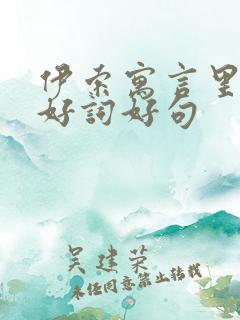 伊索寓言里
好詞好句
吴建荣
未经同意禁止转载